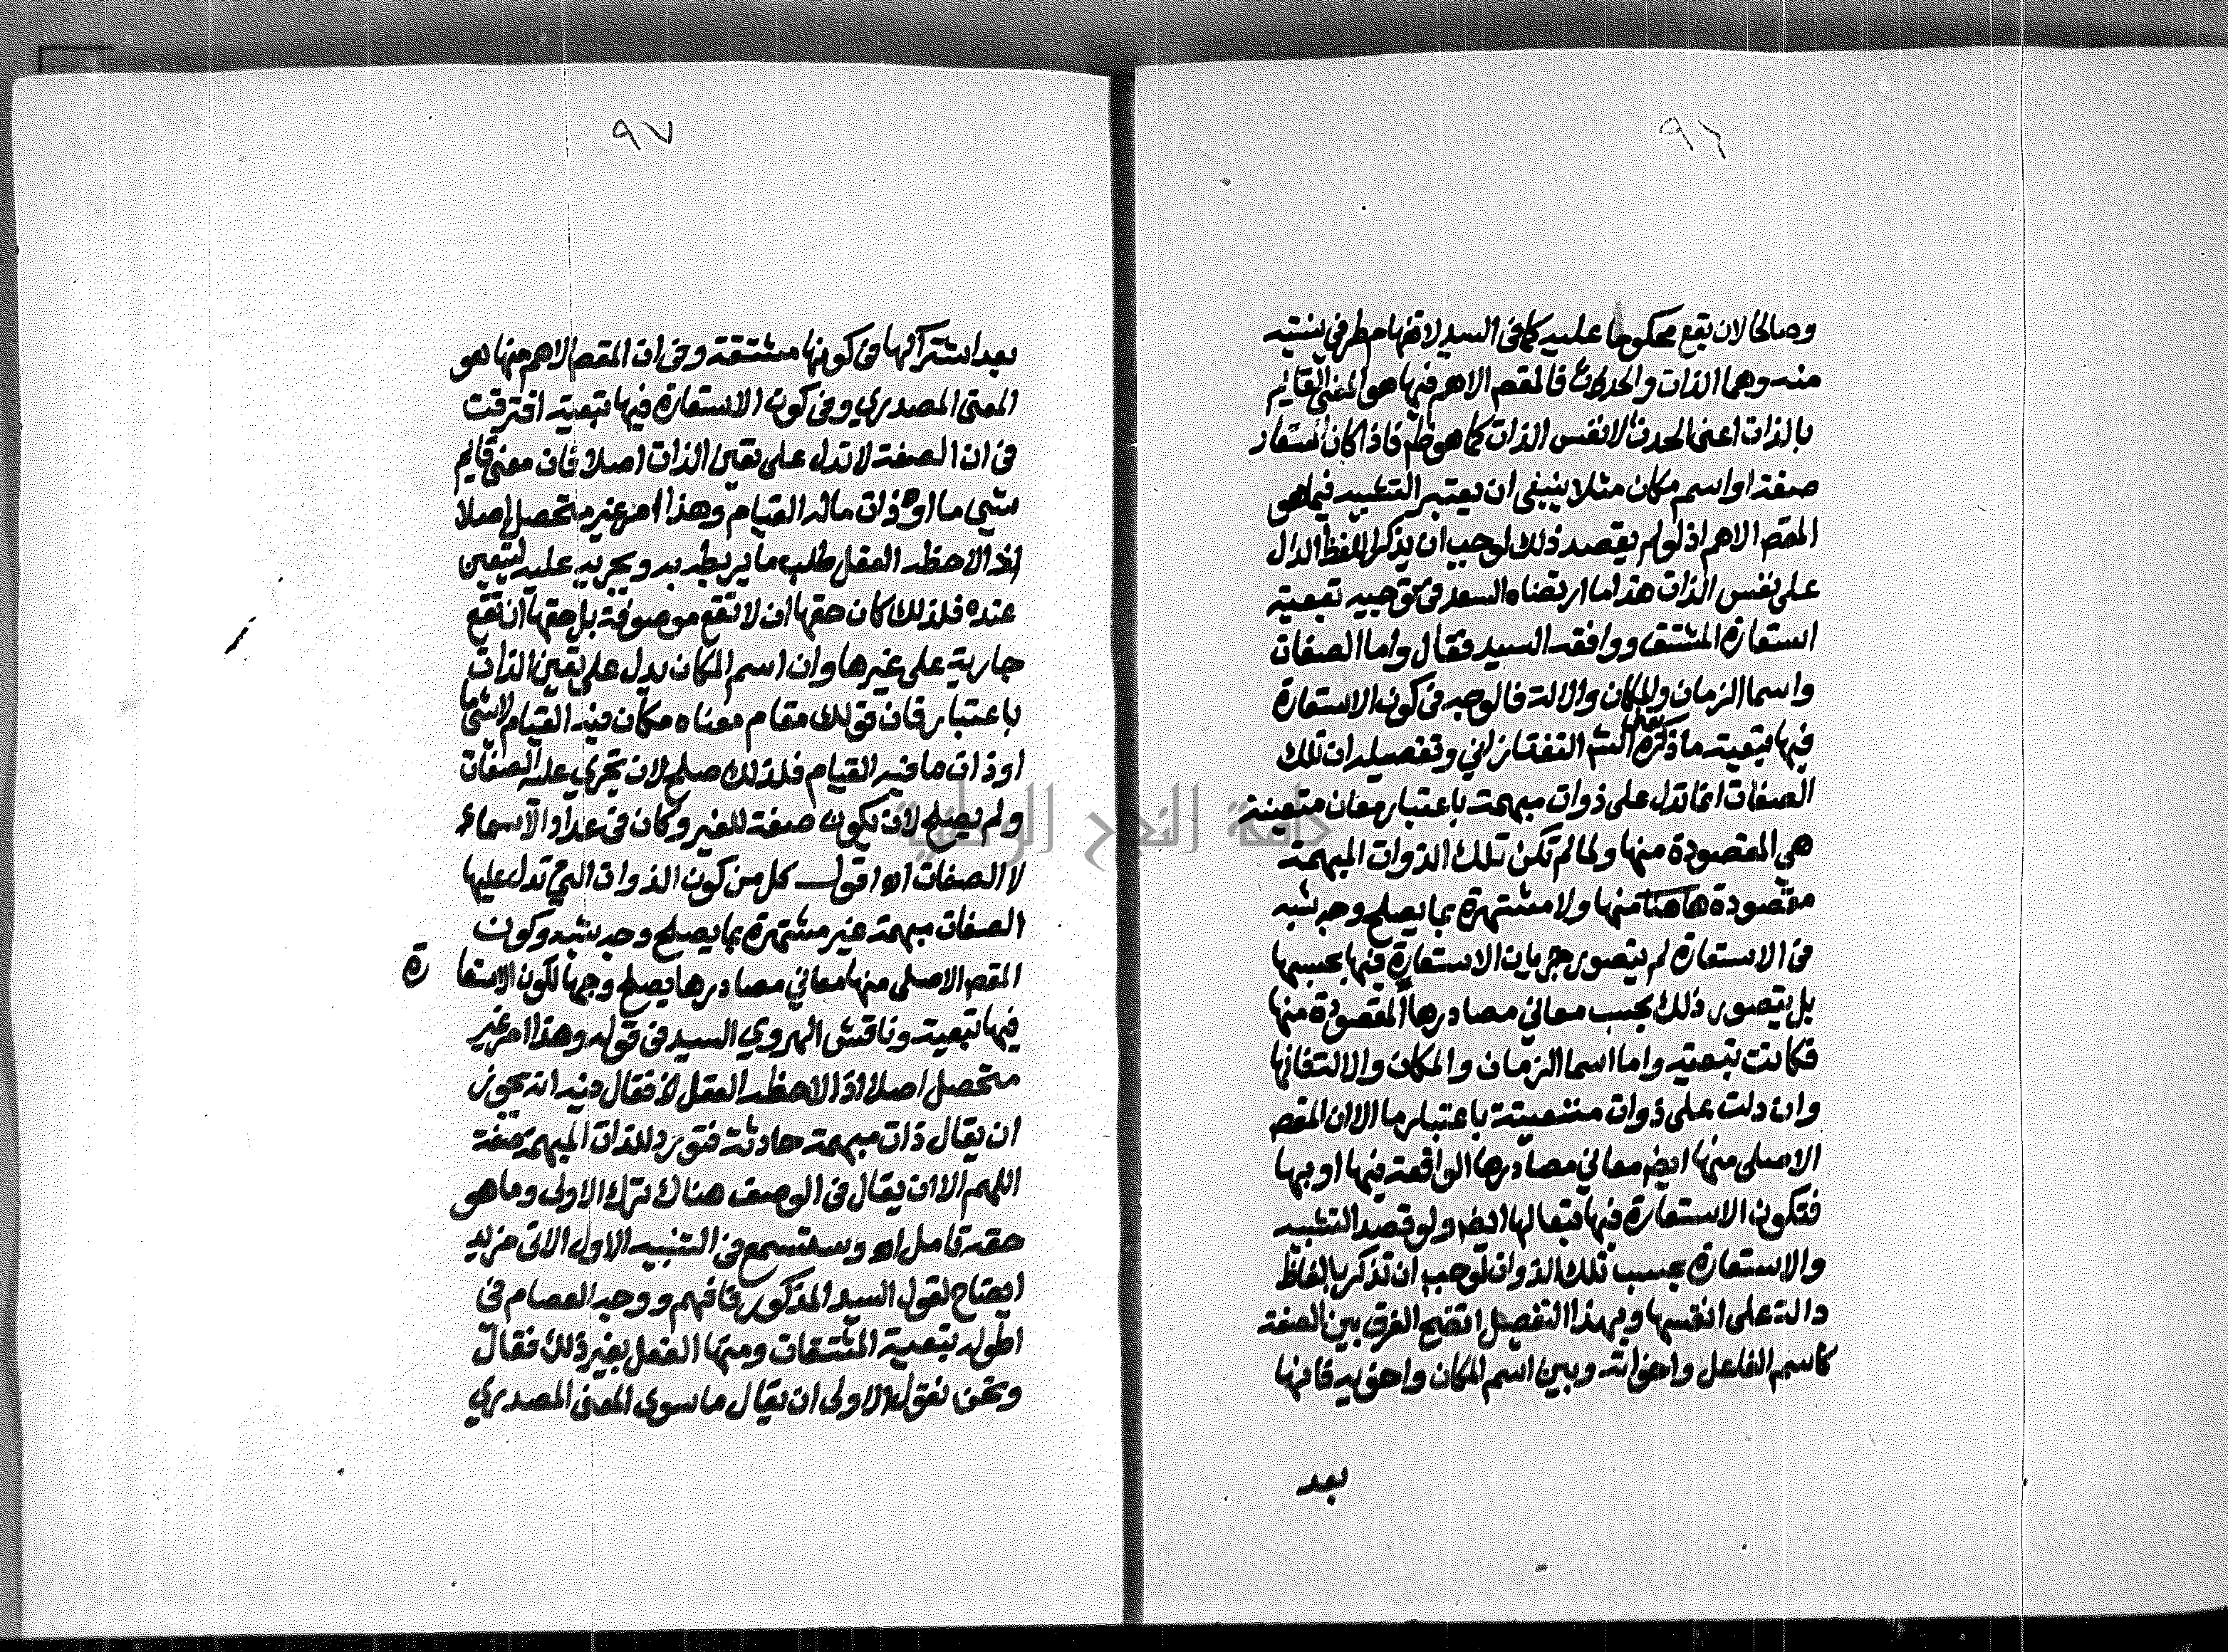 ٩٦
وصالحا لان يقع محكوما عليه كما في السيد لاقتهما طرفي نسبته
منه وهما الذات والحدث فالمقصد الاهم فيها هو المعنى القايم
بالذات اعني الحدث لا نفس الذات كما هو ظم فاذا كان المستعار
صفة او اسم مكان مثلا ينبغي ان يعتبر التشبيه فيما هو
المقصم الاهم اذ لو لم يقصد ذلك لوجب ان يذكر اللفظ الدال
على نفس الذات هذا ما ارتضاه السعد في توجيه تبعية
استعارة المشتق ووافقه السيد فقال واما الصفات
واسما الزمان والمكان والالة فالوجه في كون الاستعارة
فيها تبعية ما ذكره الشم التفتازاني وتفصيله ان تلك
الصفات انما تدل على ذوات مبهمة باعتبار معان متعينة
هي المقصودة منها ولما لم تكن تلك الذوات المبهمة
مقصودة منها ولا مشتهرة بما يصلح وجه شبه
في الاستعارة لم يتصور جريان الاستعارة فيها بحسبها
بل يتصور ذلك بحسب معاني مصادرها المقصودة منها
فكانت تبعية واما اسما الزمان والمكان والالة فانها
وان دلت على ذوات متعينة باعتبار ما الا ان المقصم
الاصلي منها ايضم معاني مصادرها الواقعة فيها او بها
فتكون الاستعارة فيها تبعا لها ايضم ولو قصد التشبيه
والاستعارة بحسب تلك الذوات لوجب ان تذكر بالفاظ
دالة على انفسها وبهذا التفصيل اتضح الفرق بين الصفة
كاسم الفاعل واخواته وبين اسم المكان واخويه فانها
بعد
٩٧
بعد اشتراكها في كونها مشتقة وفي ان المقصم الاهم منها هو
المعنى المصدري وفي كون الاستعارة فيها تبعية افترقت
في ان الصفة لا تدل على تعين الذات اصلا فان معنى قايم
شيي ما او ذات ما له القيام وهذا امر غير متحصل اصلا
اذا لاحظه العقل طلب ما يربطه به ويجريه عليه ليتعين
عنده فلذلك كان حقها ان لا تقع موصوفة بل حقها ان تقع
جارية على غيرها وان اسم المكان يدل على تعين الذات
باعتبار فان قولك مقام معناه مكان فيه القيام لا شي ما
او ذات ما فيه القيام فلذلك صلح لان تجري عليه الصفات
ولم يصلح لان تكون صفة للغير وكان في عداد الاسماء
لا الصفات اه اقول كل من كون الذوات التي تدل عليها
الصفات مبهمة غير مشتهرة بما يصلح وجه شبه وكون
المقصم الاصلي منها معاني مصادرها يصلح وجها لكون الاستعارة
فيها تبعية وناقش الهروي السيد في قوله وهذا امر غير
متحصل اصلا اذا لاحظه العقل لخ فقال فيه انه يجوز
ان يقال ذات مبهمة حادثة فتورد للذات المبهمة صفة
اللهم الا ان يقال في الوصف هناك ترك الاولى وما هو
حقه تامل اه وستسمع في التنبيه الاول الاتي مزيد
ايضاح لقول السيد المذكور فافهم ووجه العصام في
اطوله تبعية المشتقات ومنها الفعل بغير ذلك فقال
ونحن نقول الاولى ان يقال ما سوى المعنى المصدري